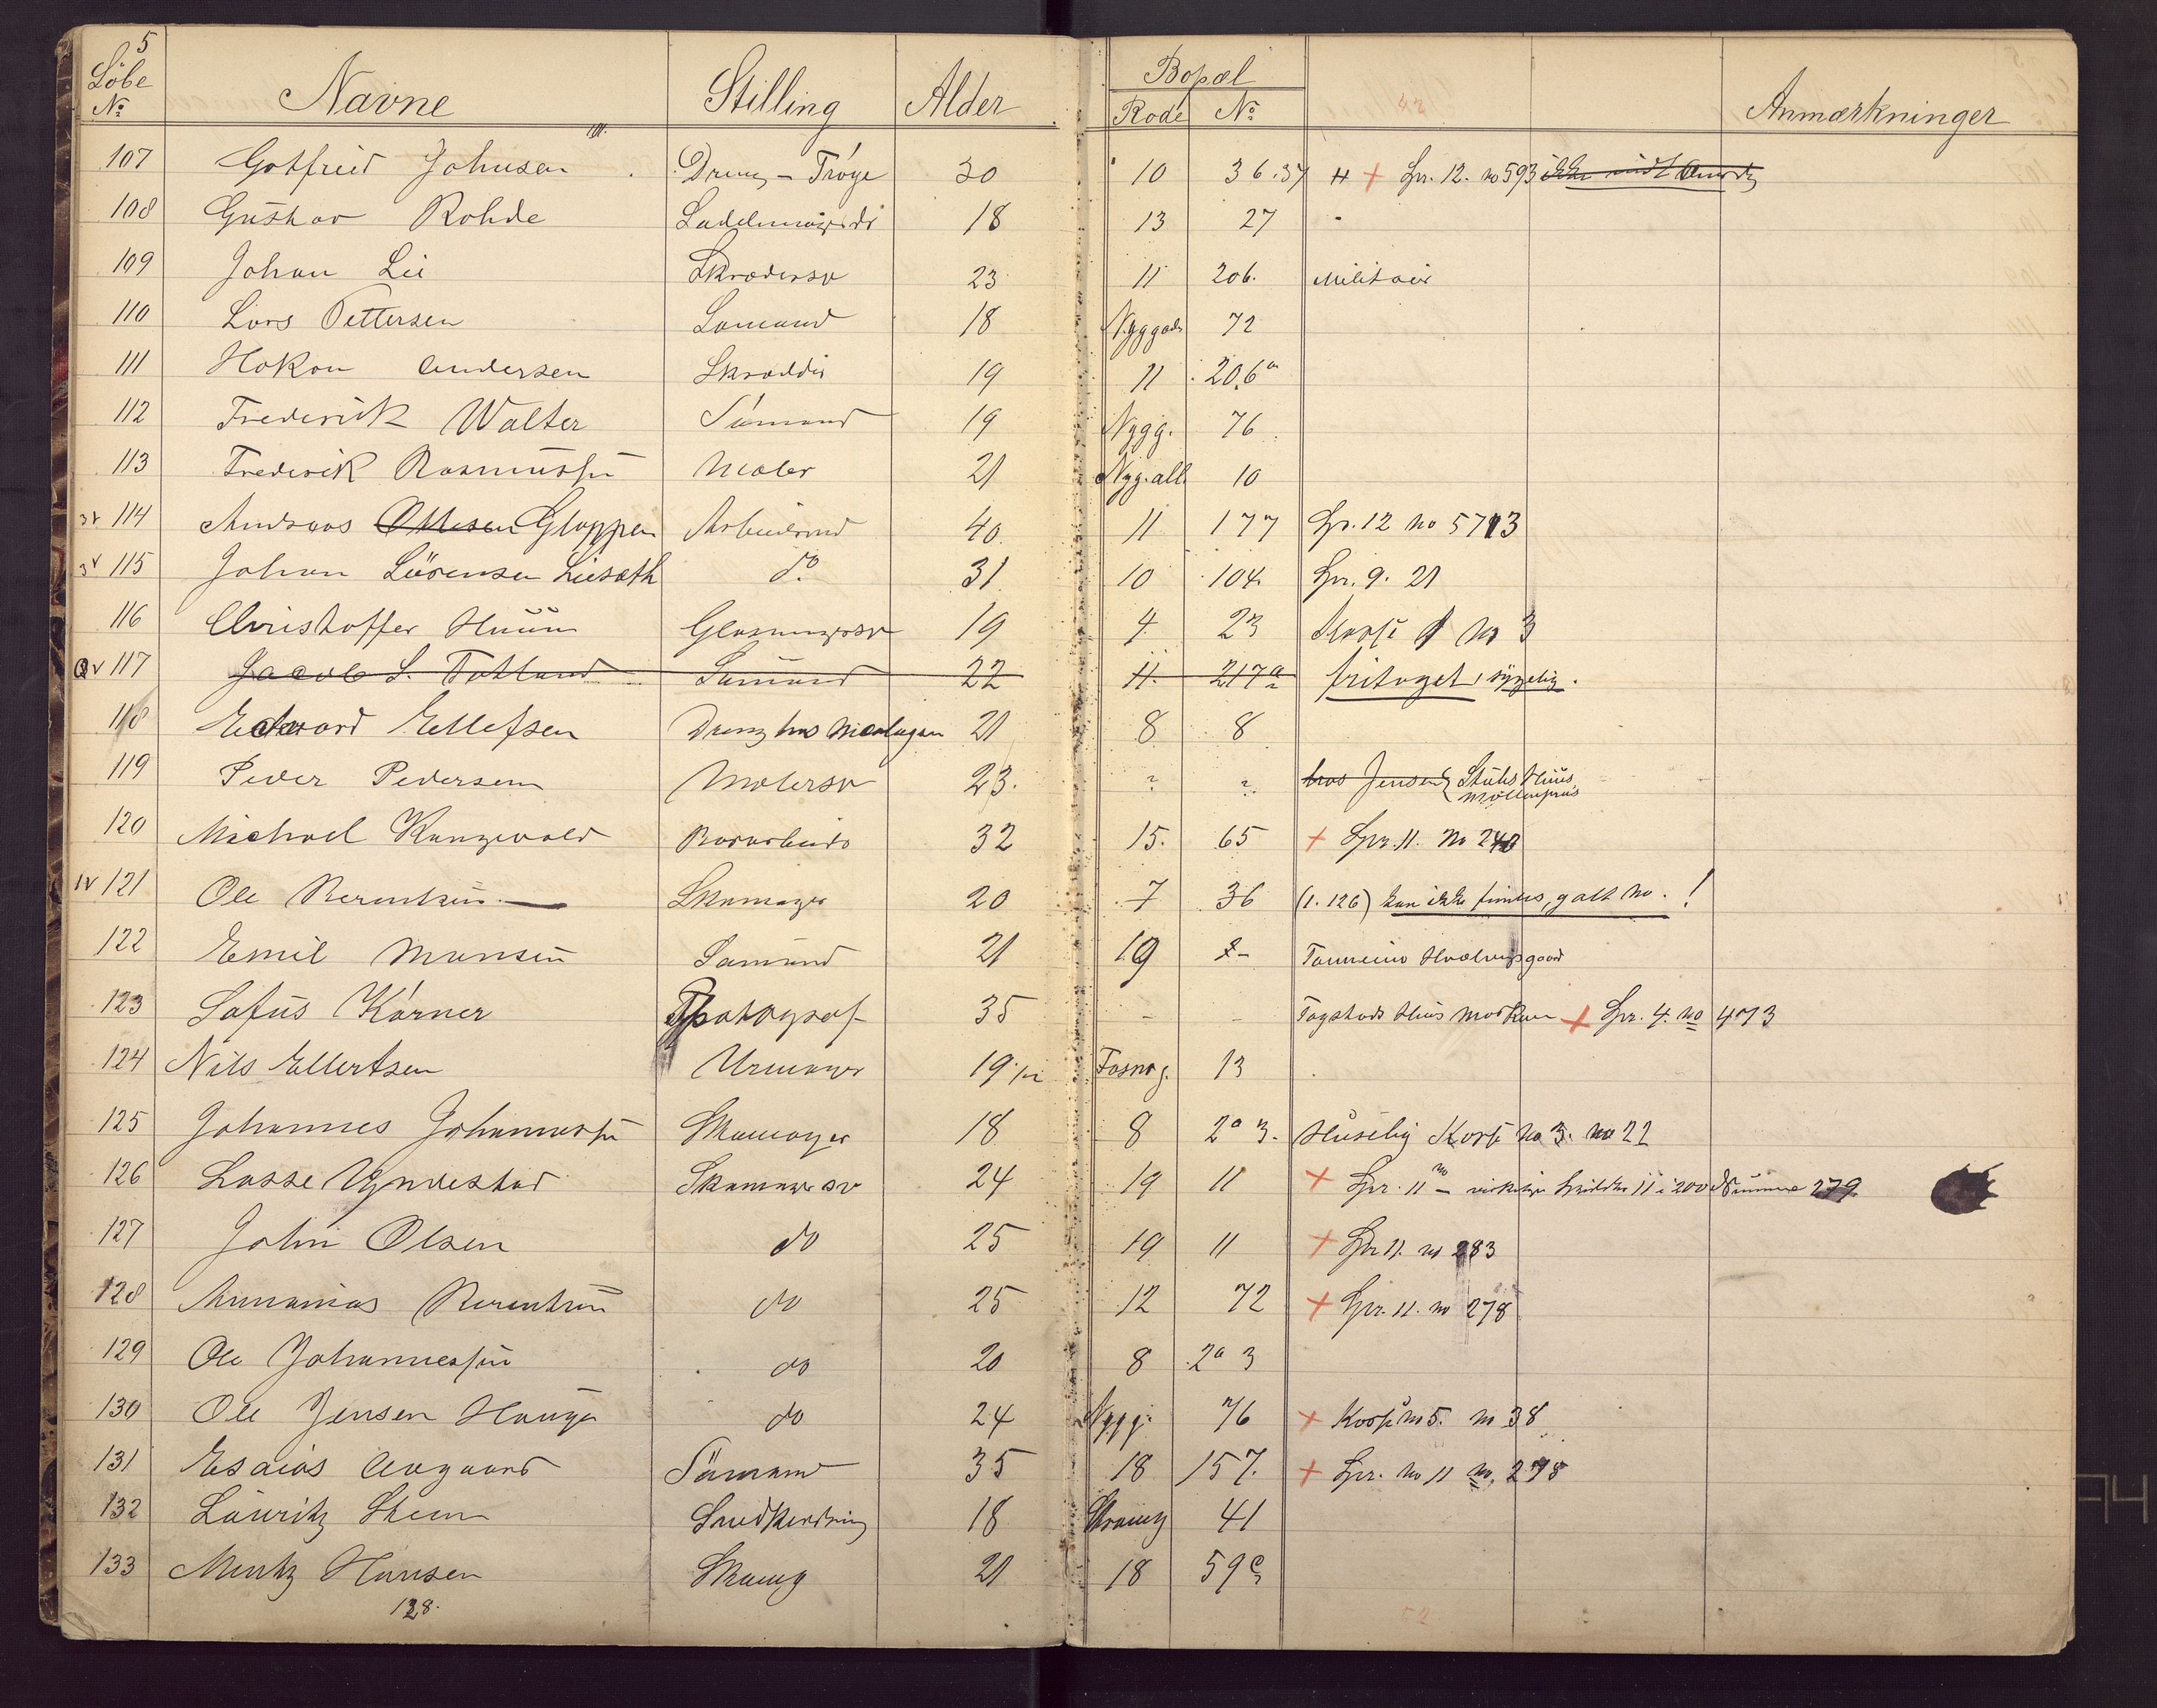 5
Löbe No Navne Stilling Alder Bopæl Rode No Anmærkninger
107 Gotfried Johnsen Dreng - Tröye 30 10 36.37 # + Spr. 12. no 593
108 Gustav Rohde 18 13 27
109 Johan Lie Skrædersv 23 11 206. Militair
110 Lars Pettersen Sömand 18 Nyggade 72
111 Hokon Andersen Skrædder 19 11 206a
112 Frederik Walter Sömand 19 Nygg. 76
113 Frederik Rasmussen Maler 21 Nyg.all. 10
114 Andreas Ottesen Gloppen Arbeidsmd 40 11 177 Spr. 12 no 5713
115 Johan Lörensen Liesæth do 31 10 104 Spr. 9. 21
116 Christoffer Huun Glasmagersv 19 4 23 Korps no 3
117 Jacob S. Totland Sömand 22 11. 217a fritaget, sygelig.
118 Edvard Ellefsen Dreng hos Nicolaysen 21 8 8
119 Peder Pedersen Malersv 23. ? ? hos Jensen Stuhs Huus
Möllenpriis
120 Michael Kongsvold 32 15. 65 + Spr. 11. No 240
121 Ole Berentsen Skomager 20 7 36 (1.126) kan ikke findes, galt no. !
122 Emil Monsen Sömand 21 19 2-
123 Sofus Körner Photograf 35 - - Tagstads Huus Marken + Spr. 4. no 473
124 Nils Ellertsen Urmager 19 1/2 Fosvg. 13
125 Johannes Johannessen Skomager 18 8 2a 3. Huselig Korps No 3. no 22
126 Lasse Yndestad Skomagersv 24 19 11 + Spr. 11 no 279
127 John Olsen do 25 19 11 + Spr 11. no 283
128 Annanias Berentsen do 25 12 72 + Spr. 11. no 278
129 Ole Johannessen do 20 8 2a 3
130 Ole Jensen Hauge do 24 Nygg. 76 + Korps no 5. no 38
131 Esaias Aagaard Sömand 35 18 157. + Spr. No 11 no. 298
132 Lauritz Steen Snedkerdreng 18 Strandg 41
133 Mentz Hansen Skomg 21 18 59c
128.